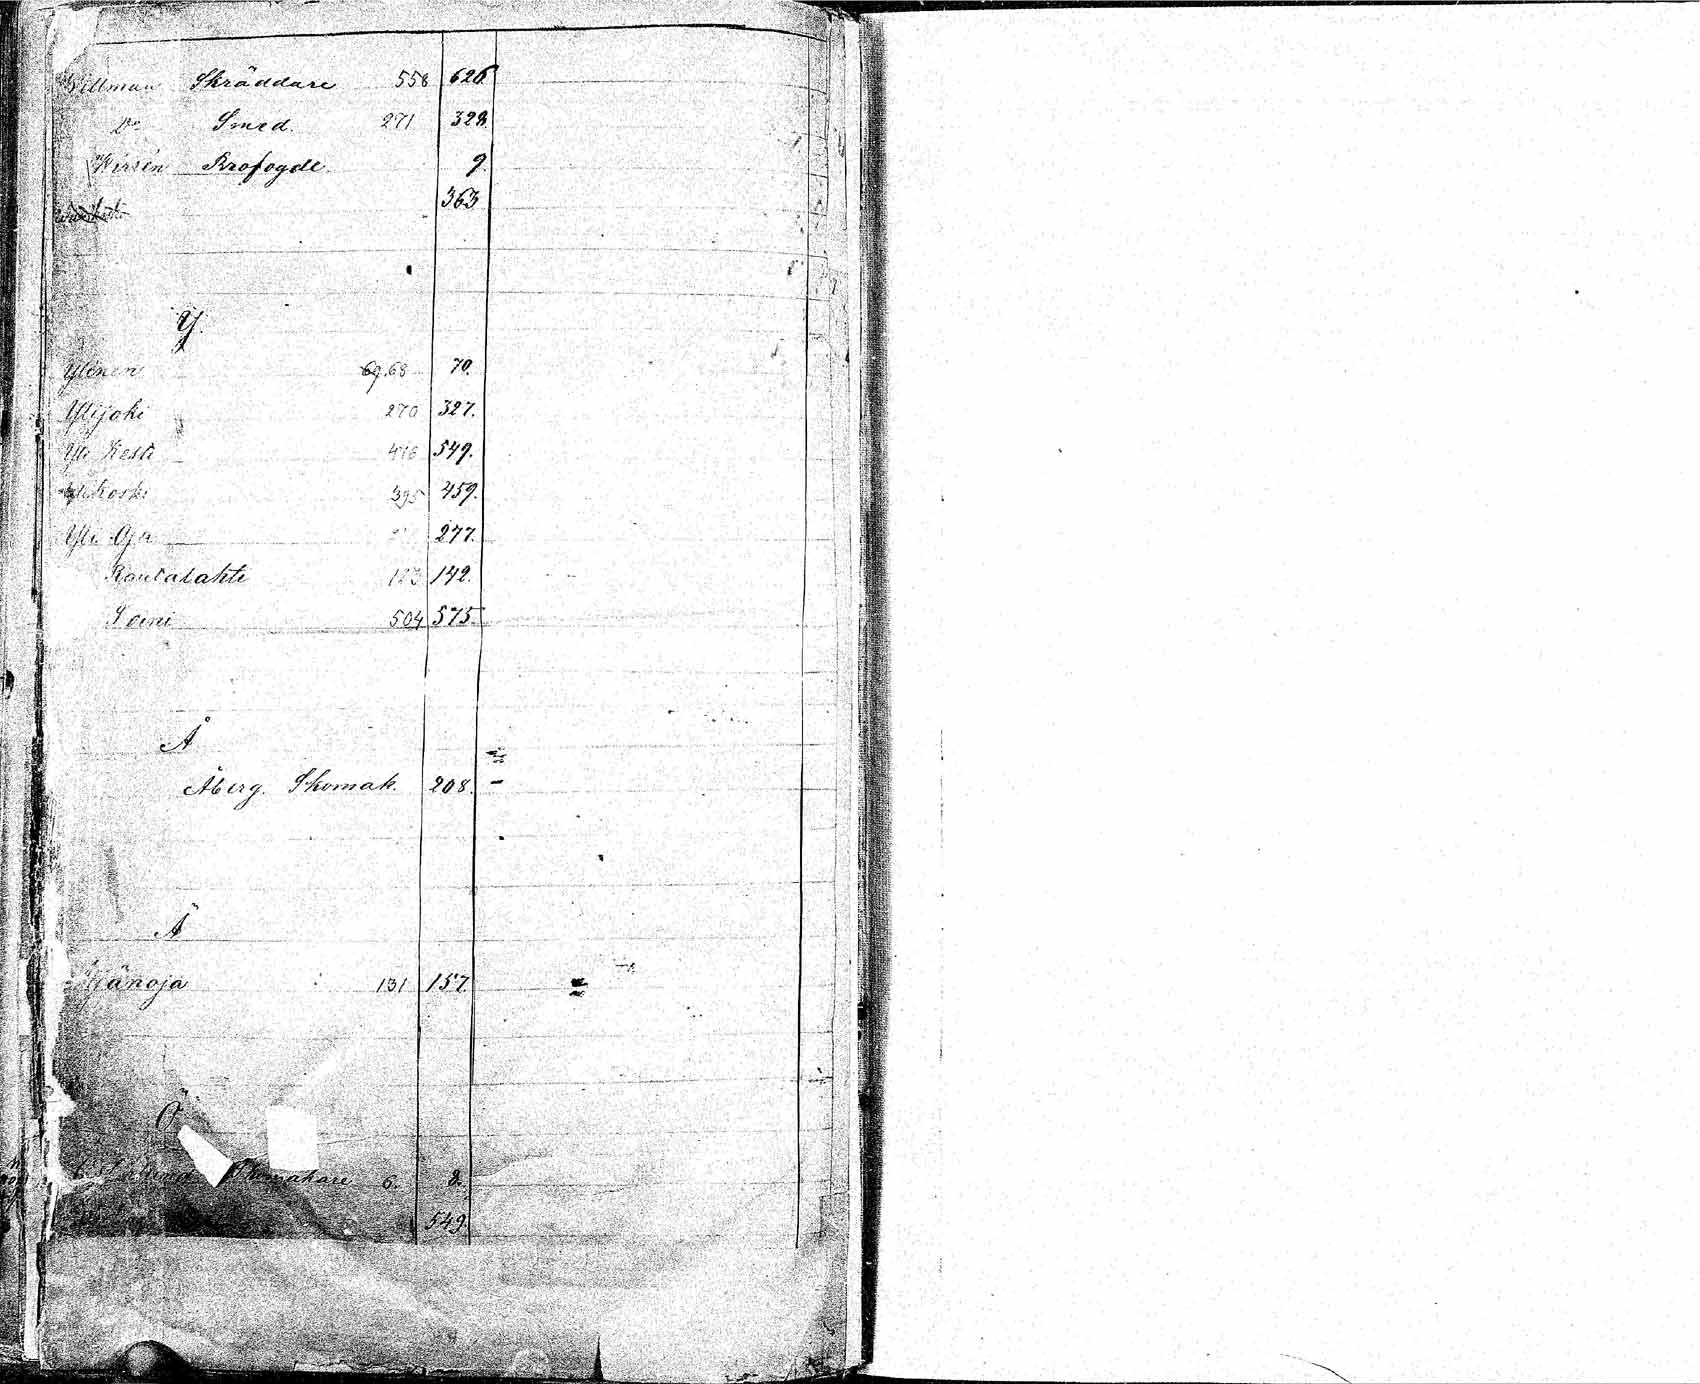 Willman Skräddare 558 626.
Do Smed. 271 328.
Wirsén Brofogde. 9.
363
Y.
Ylinen 69.68 70.
Ylijoki 270 327.
Yli Kesti 476 549.
Ylikoski 395 459.
Yli Oja 277.
Rautalahti 123 142.
Soini 504 575.
Å
Åberg. Skomak. 208.
Ä
Äijänoja 131 157.
Ö
Skomakare 6. 2.
549.